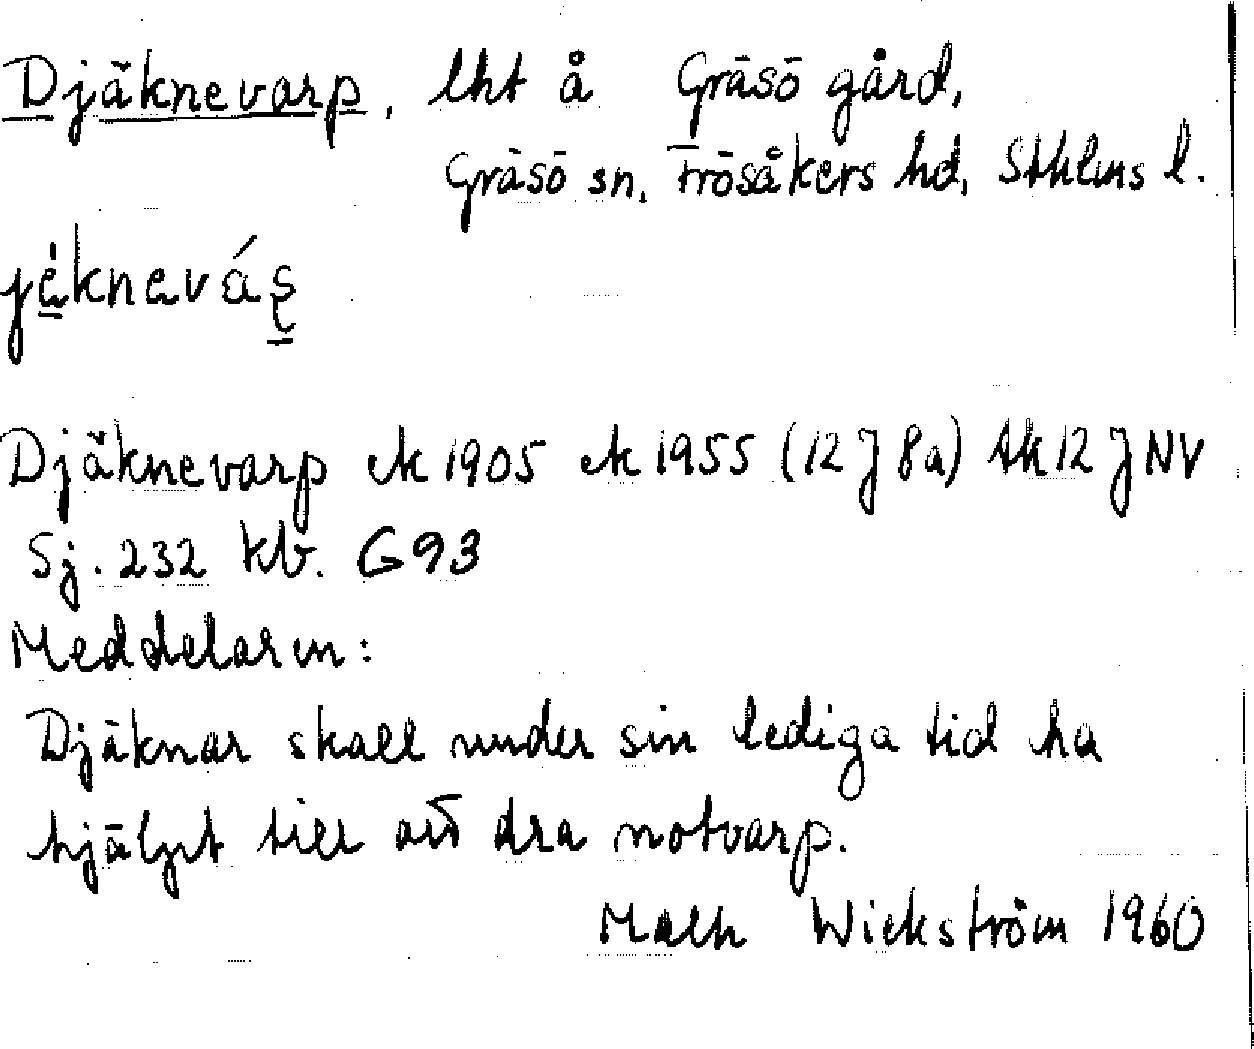 Djäknevarp, lht å Gräsö gård,
Gräsö sn, Frösåkers hd, Sthlms l.
Djäknevarp ek 1905 ek 1955 (12 J 8a) tk 12 J NV
Sj. 232 kb. G93
Meddelaren:
Djäknar skall under sin lediga tid ha
hjälpt till att dra notvarp.
Wickström 1960